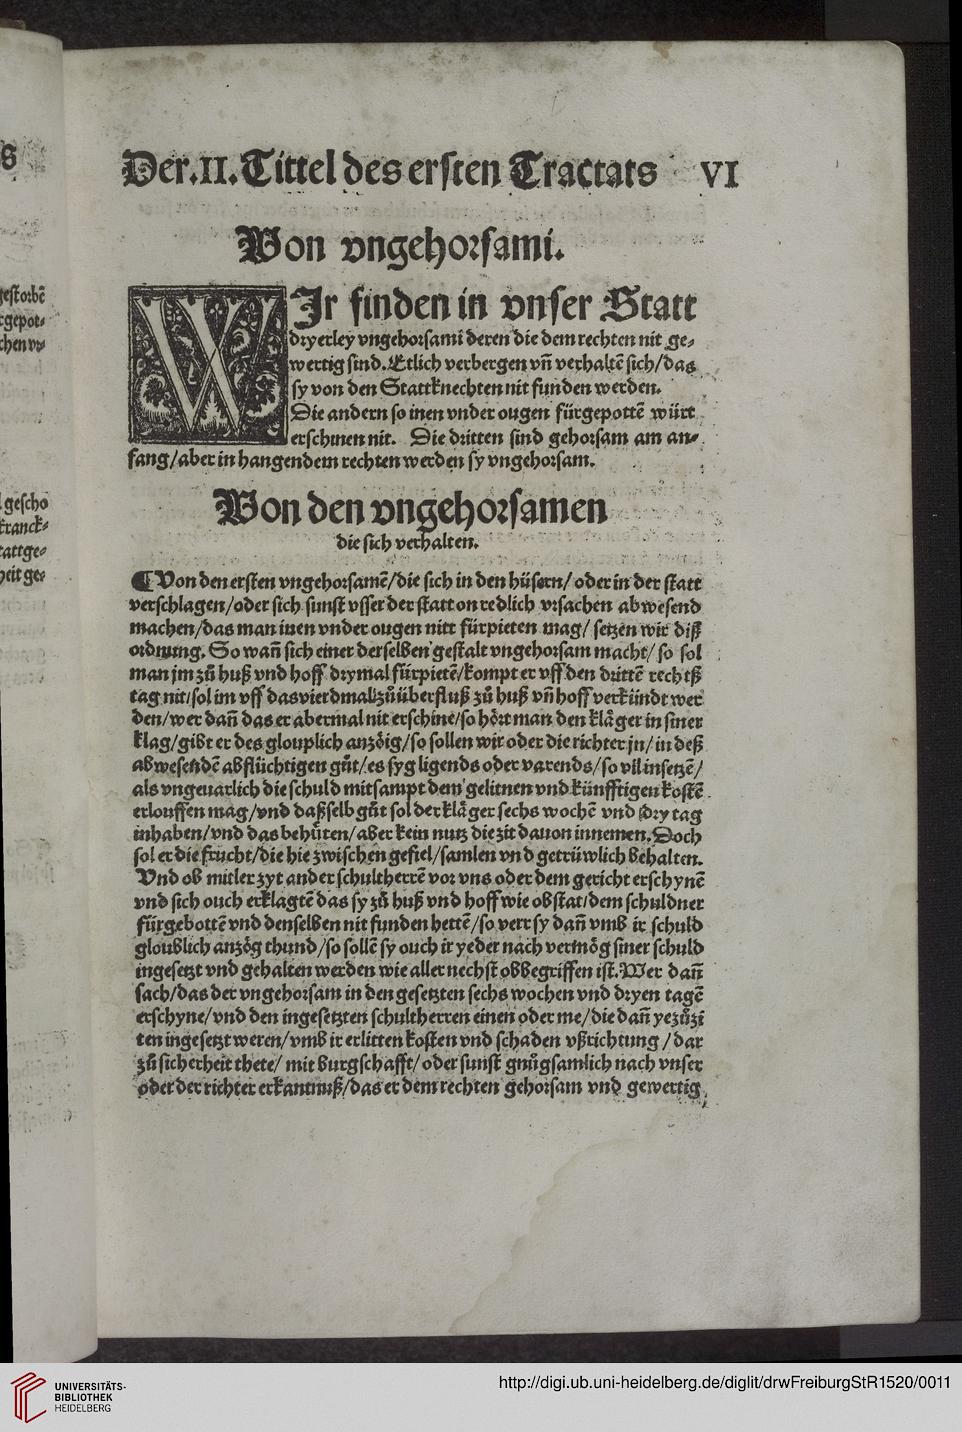 s
gestorbē
rgepot⸗
chen vn⸗
gescho
kranck⸗
tattge⸗
heit ge⸗
Der.II.Tittel des ersten Tractats VI
Von vngehorsami.
WJr finden in vnser Statt
dryerley vngehorsami deren die dem rechten nit ge⸗
wertig sind. Etlich verbergen vñ verhaltē sich/das
sy von den Stattknechten nit funden werden.
Die andern so inen vnder ougen fürgepottē würt
erschinen nit. Die dritten sind gehorsam am an⸗
fang/aber in hangendem rechten werden sy vngehorsam.
Von den vngehorsamen
die sich verhalten.
¶Von den ersten vngehorsamē/die sich in den hüsern/ oder in der statt
verschlagen/oder sich sunst vsser der statt on redlich vrsachen abwesend
machen/das man inen vnder ougen nitt fürpieten mag/ setzen wir diß
ordnung. So wañ sich einer derselben gestalt vngehorsam macht/ so sol
man jm zů huß vnd hoff drymal fürpietē/kompt er vff den drittē rechtß
tag nit/sol im vff das vierdmal zů überfluß zů huß vñ hoff verkündt wer
den/wer dañ das er abermal nit erschine/so hört man den kläger in siner
klag/gibt er des glouplich anzöig/so sollen wir oder die richter jn/ in deß
abwesendē abflüchtigen gůt/es syg ligends oder varends/so vil insetzē/
als vngeuarlich die schuld mitsampt dem gelitnen vnd künfftigen kostē
erlouffen mag/vnd daßselb gůt sol der kläger sechs wochē vnd dry tag
inhaben/vnd das behůten/aber kein nutz die zit dauon innemen. Doch
sol er die frucht/die hie zwischen gefiel/samlen vnd getrüwlich behalten.
Vnd ob mitler zyt ander schultherrē vor vns oder dem gericht erschynē
vnd sich ouch erklagtē das sy zů huß vnd hoff wie obstat/dem schuldner
fürgebottē vnd denselben nit funden hettē/so verr sy dañ vmb ir schuld
gloublich anzög thund/so sollē sy ouch ir yeder nach vermög siner schuld
ingesetzt vnd gehalten werden wie aller nechst obbegriffen ist. Wer dañ
sach/das der vngehorsam in den gesetzten sechs wochen vnd dryen tagē
erschyne/vnd den ingesetzten schultherren einen oder me/die dañ ye zůzi
ten ingesetzt weren/vmb ir erlitten kosten vnd schaden vßrichtung/ dar
zů sicherheit thete/ mit burgschafft/ oder sunst gnůgsamlich nach vnser
oder der richter erkantnuß/das er dem rechten gehorsam vnd gewertig
UNIVERSITÄTS-
BIBLIOTHEK
HEIDELBERG
http://digi.ub.uni-heidelberg.de/diglit/drwFreiburgStR1520/0011